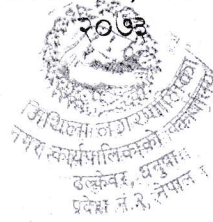 २०७३
मिथिला नगरपालिका
नगर कार्यपालिकाको कार्यालय
ढल्केवर, धनुषा
प्रदेश नं. २, नेपाल